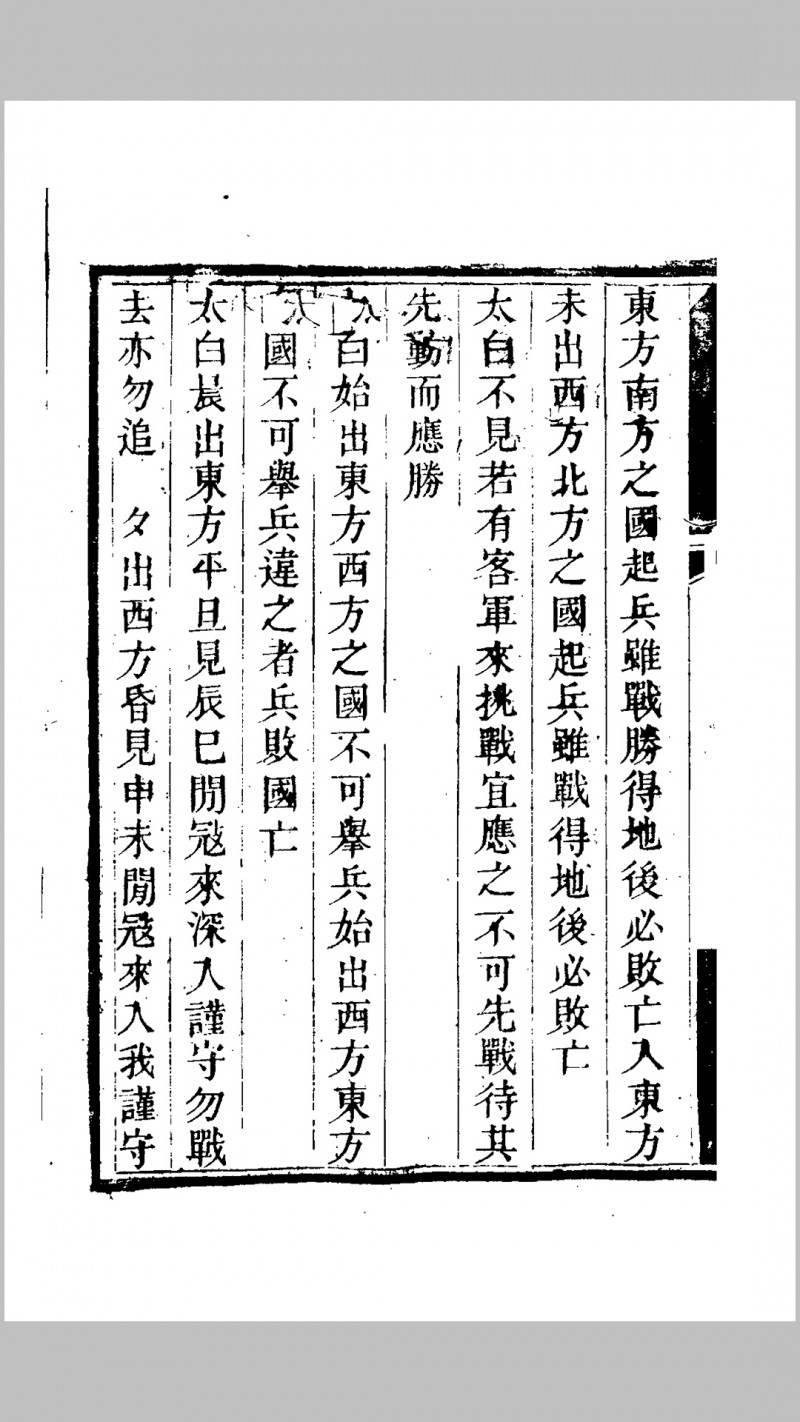 東方南方之國起兵雖戰勝得地後必敗亡入東方
未出西方北方之國起兵雖戰得地後必敗亡
太白不見若有客軍來挑戰宜應之不可先戰待其
先動而應勝
白始出東方西方之國不可舉兵始出西方東方
國不可舉兵違之者兵敗國亡
太白晨出東方平旦見辰巳閒冦來深入謹守勿戰
去亦勿追　夕出西方昏見申未閒冦來入我謹守